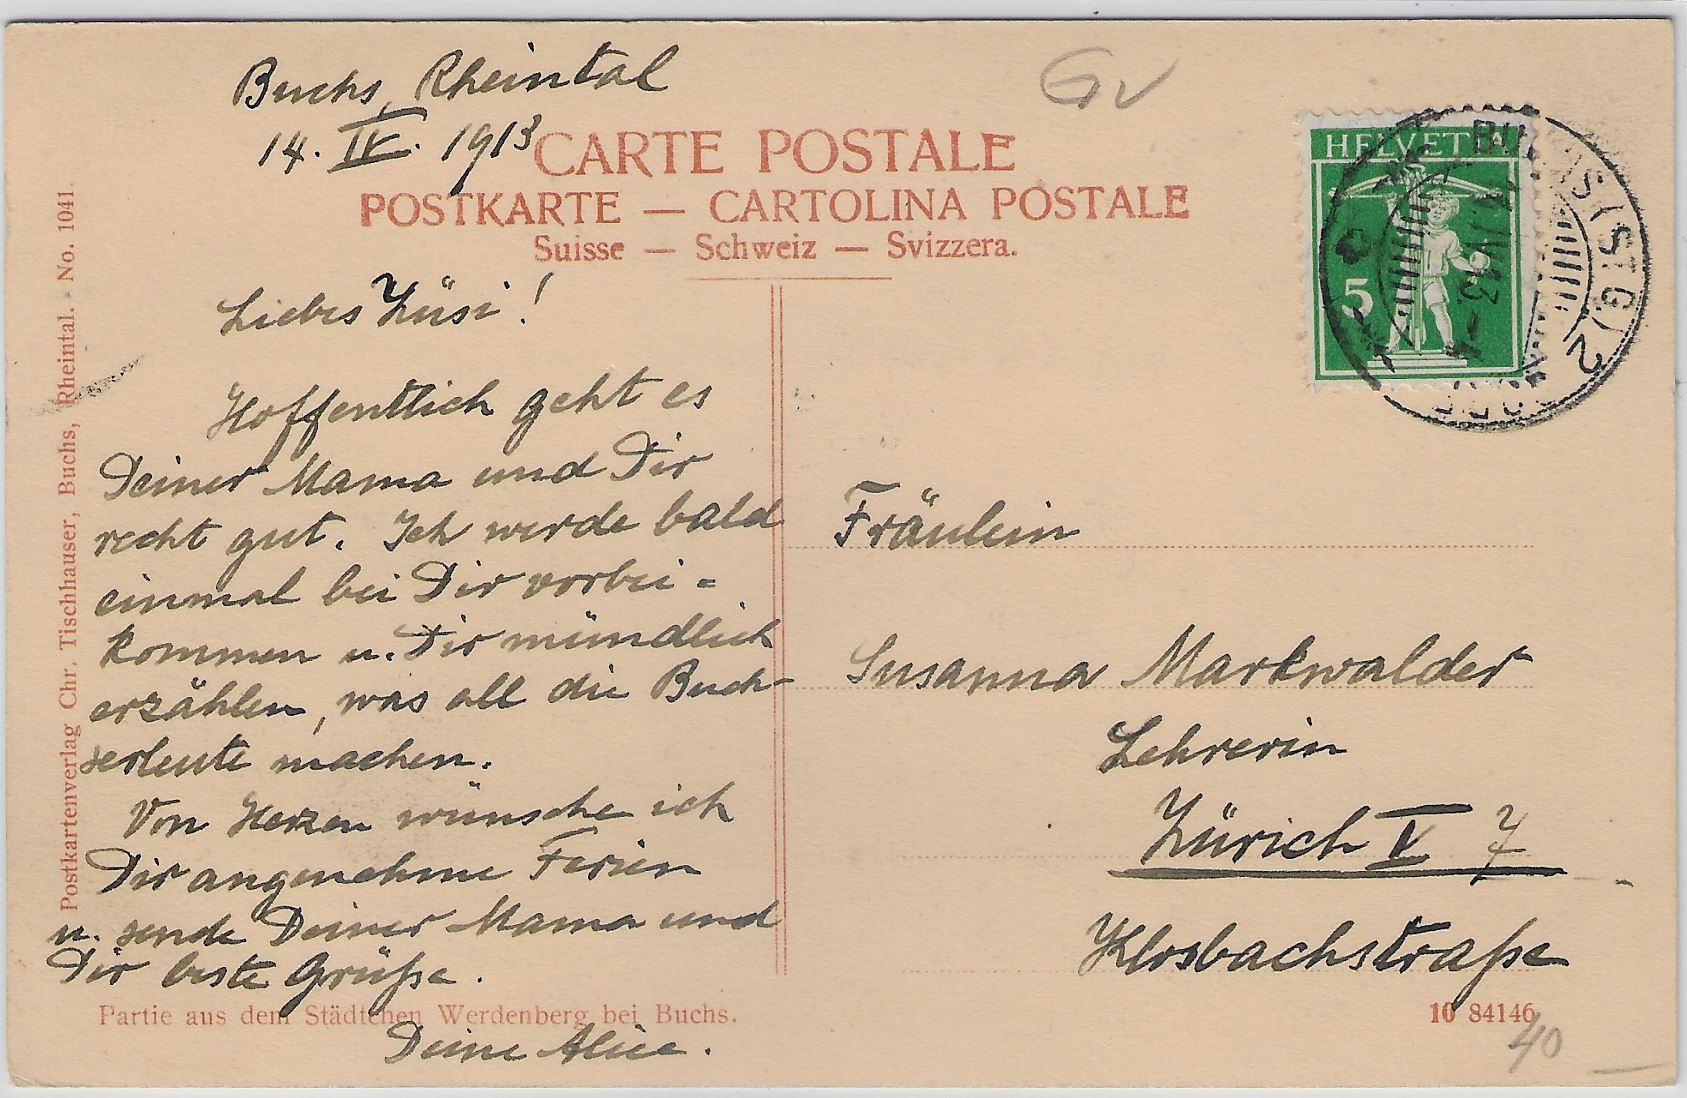 Buchs, Rheintal
14. IV. 1913
CARTE POSTALE
POSTKARTE — CARTOLINA POSTALE
Suisse — Schweiz — Svizzera.
Liebes Züsi!
Hoffentlich geht es
Deiner Mama und Dir
recht gut. Ich werde bald
einmal bei Dir vorbei-
kommen u. Dir mündlich
erzählen, was all die Buch-
serleute machen.
Von Herzen wünsche ich
Dir angenehme Ferien
u. sende Deiner Mama und
Dir beste Grüße.
Deine Alice.
Partie aus dem Städtchen Werdenberg bei Buchs.
Postkartenverlag Chr. Tischhauser, Buchs, Rheintal. - No. 1041.
HELVETIA
5
(ST.G) 2
Fräulein
Susanna Markwalder
Lehrerin
Zürich V 7
Klosbachstraße
10 84146
40